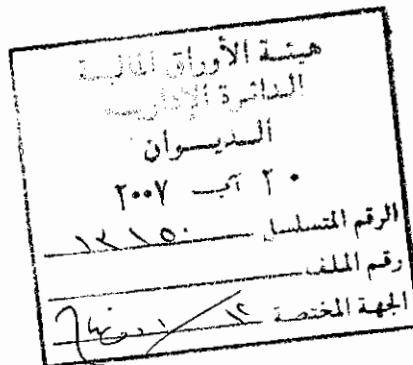 هيئة الأوراق المالية
الدائرة الإدارية
الديوان
٢٠ آب ٢٠٠٧
الرقم المتسلسل ١٣١٥٠
رقم الملف
الجهة المختصة ١٢